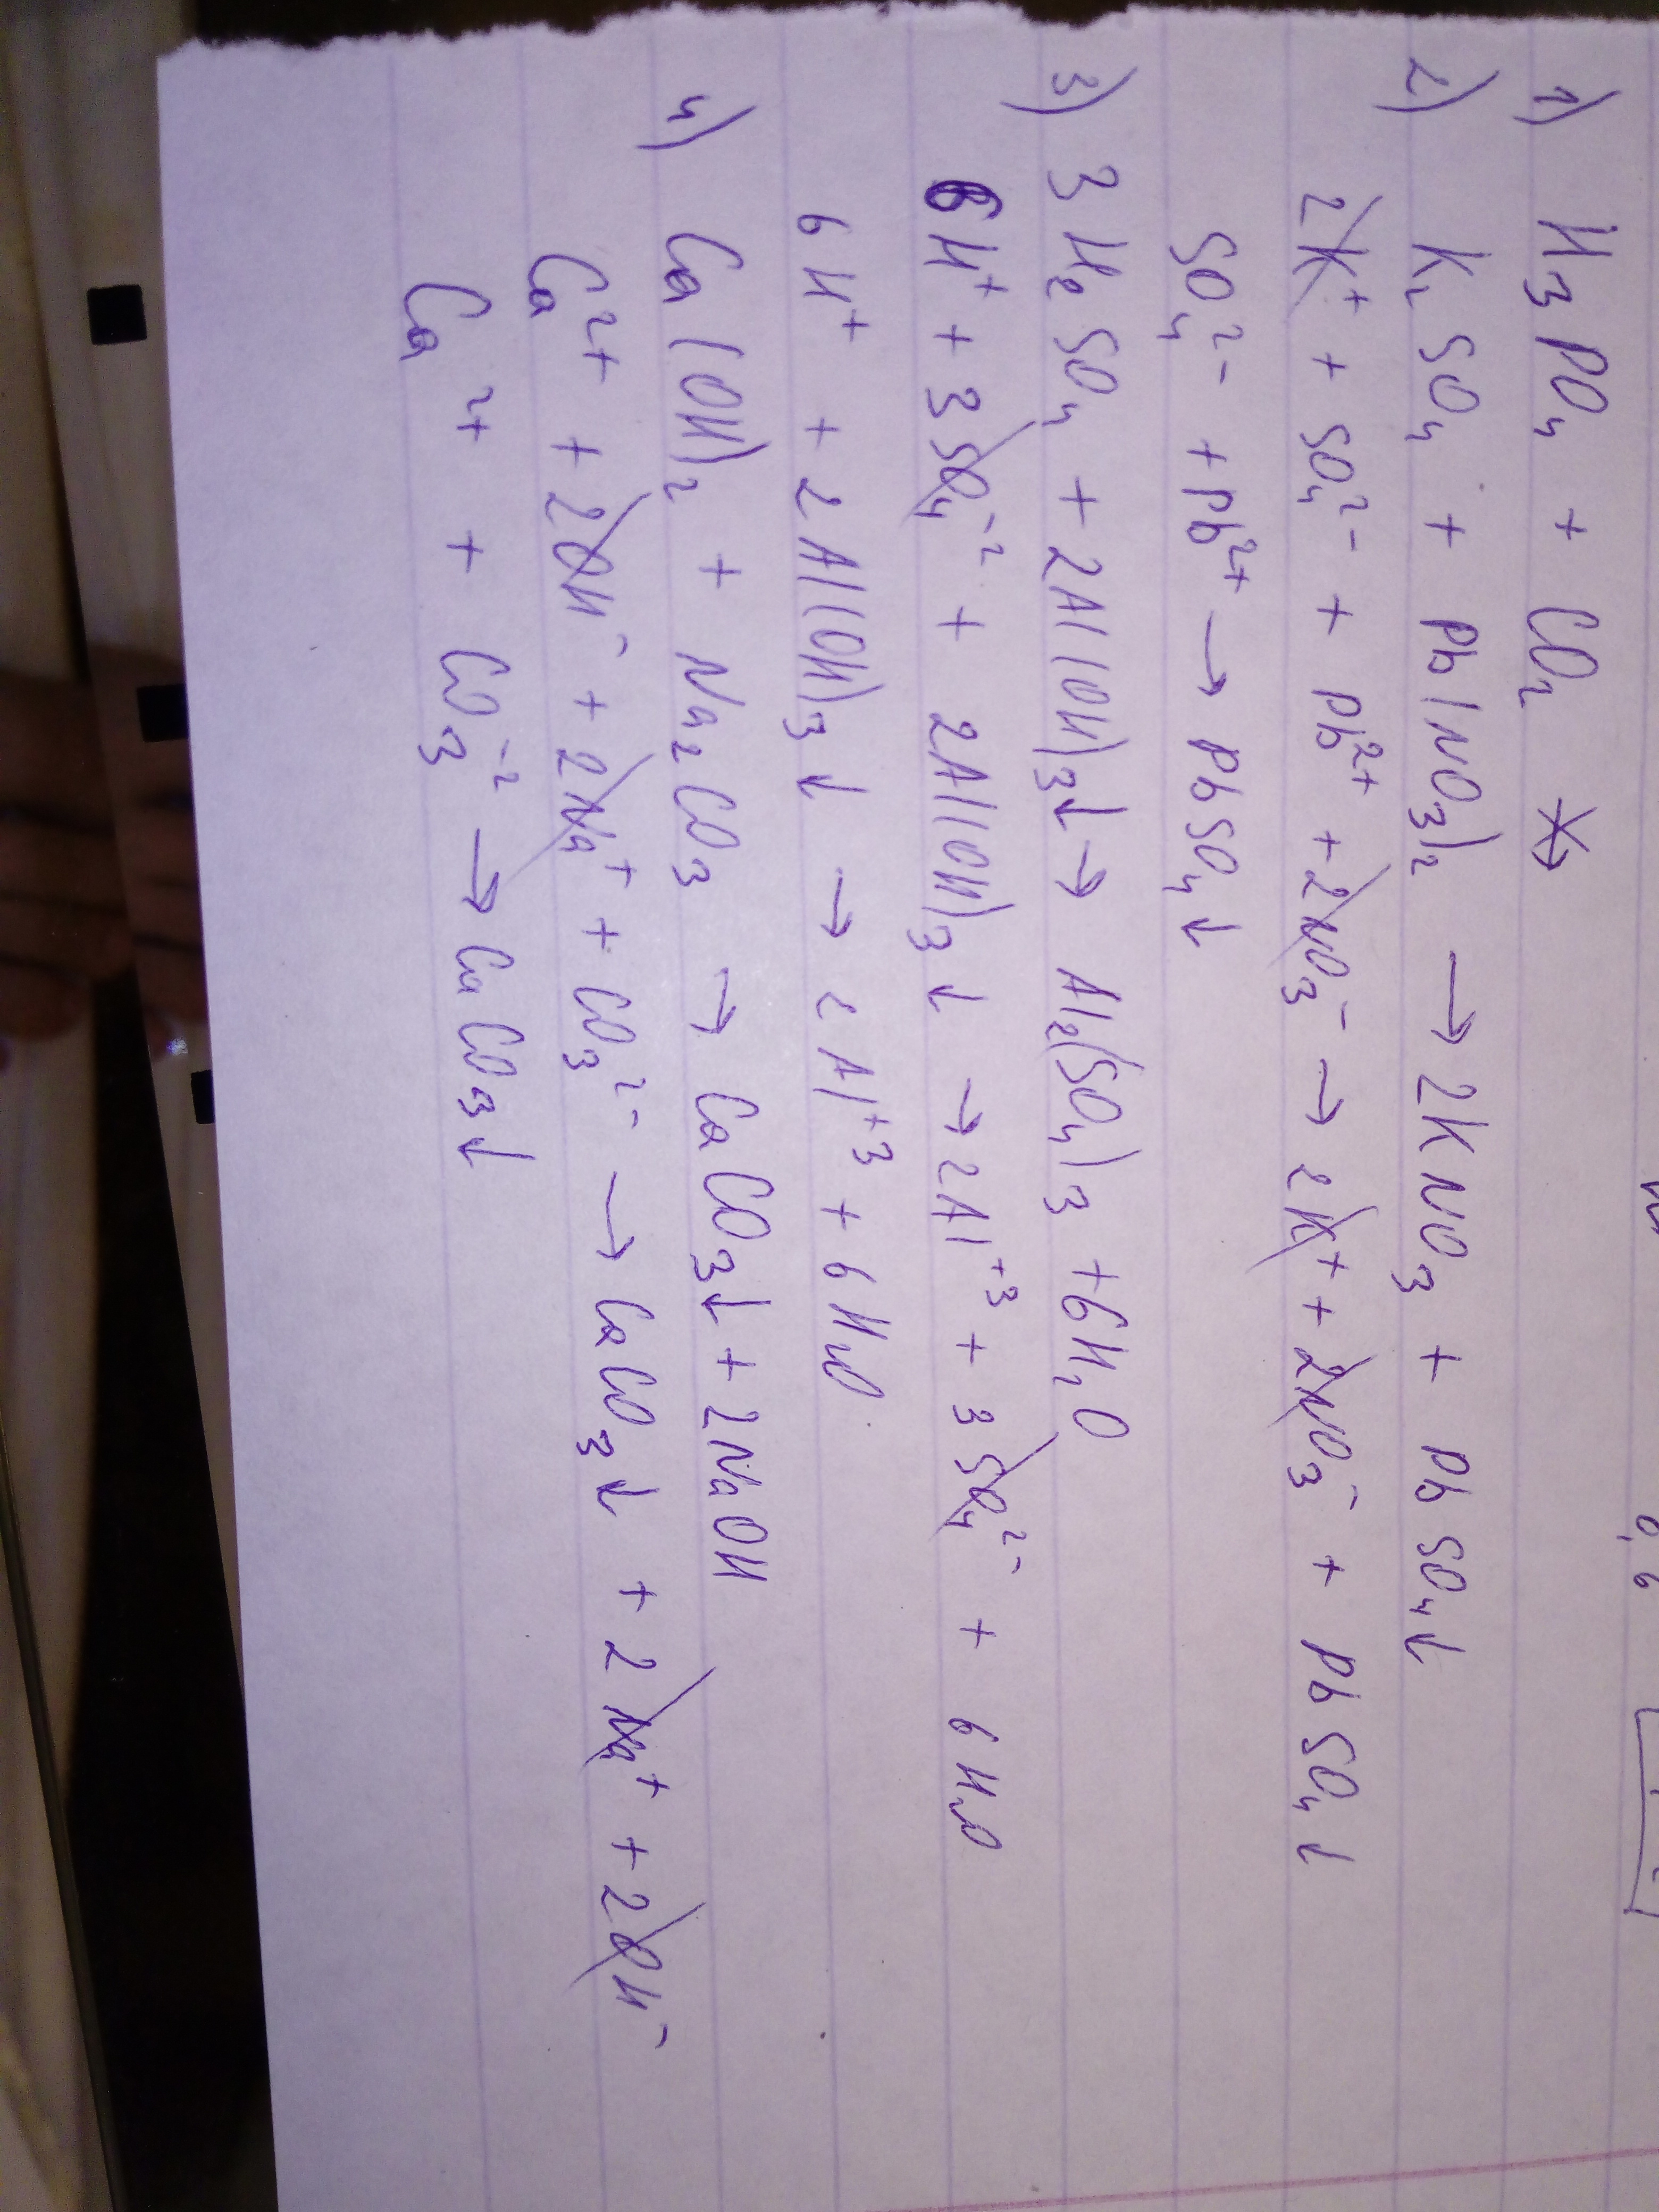 1) H₃PO₄ + CO₂ ↛
2) K₂SO₄ + Pb(NO₃)₂ → 2KNO₃ + PbSO₄↓
2K⁺ + SO₄²⁻ + Pb²⁺ + 2NO₃⁻ → 2K⁺ + 2NO₃⁻ + PbSO₄↓
SO₄²⁻ + Pb²⁺ → PbSO₄↓
3) 3H₂SO₄ + 2Al(OH)₃↓ → Al₂(SO₄)₃ + 6H₂O
6H⁺ + 3SO₄⁻² + 2Al(OH)₃↓ → 2Al⁺³ + 3SO₄²⁻ + 6H₂O
6H⁺ + 2Al(OH)₃↓ → 2Al⁺³ + 6H₂O
4) Ca(OH)₂ + Na₂CO₃ → CaCO₃↓ + 2NaOH
Ca²⁺ + 2OH⁻ + 2Na⁺ + CO₃²⁻ → CaCO₃↓ + 2Na⁺ + 2OH⁻
Ca²⁺ + CO₃⁻² → CaCO₃↓